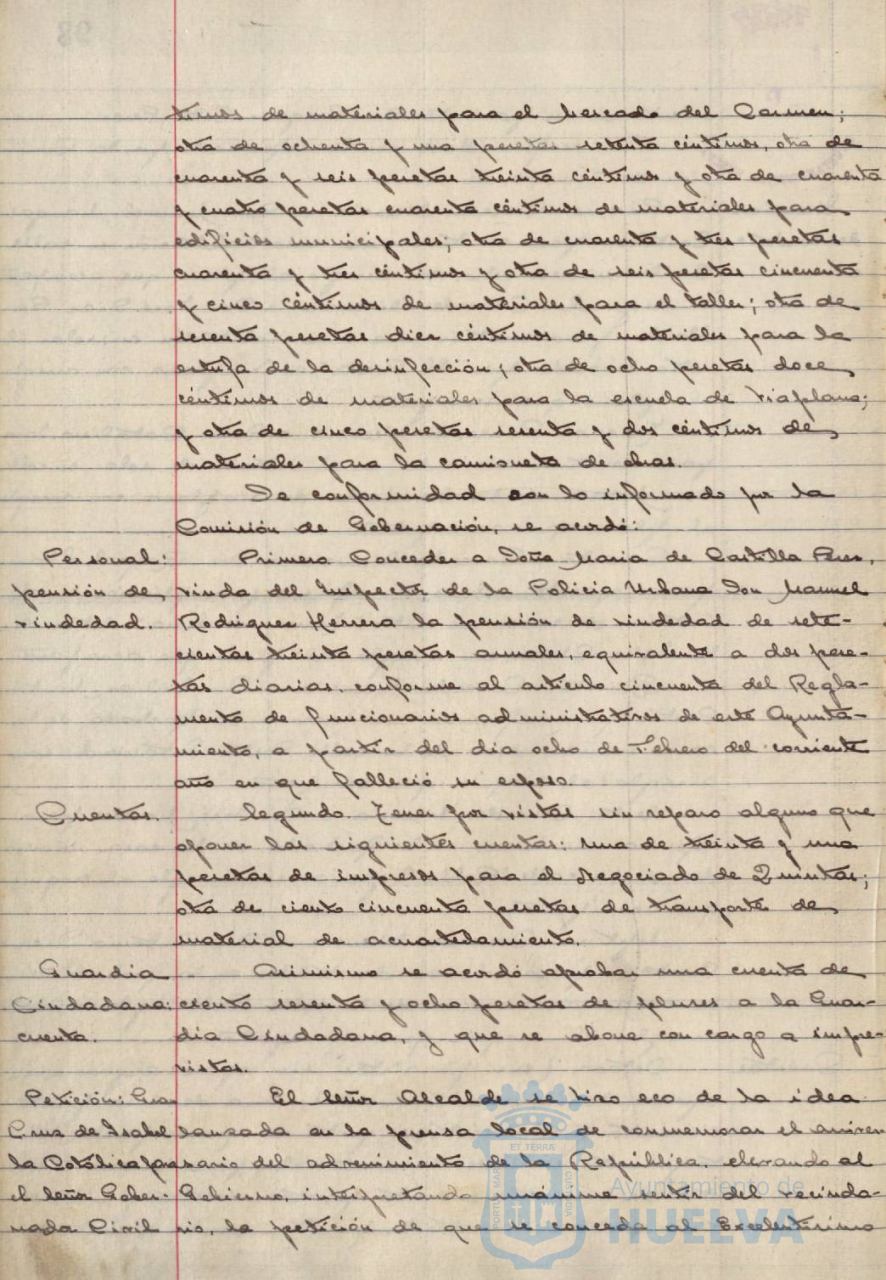 timos de materiales para el Mercado del Carmen;
otra de ochenta y una pesetas setenta céntimos, otra de
cuarenta y seis pesetas treinta céntimos y otra de cuarenta
y cuatro pesetas cuarenta céntimos de materiales para
edificios municipales; otra de cuarenta y tres pesetas
cuarenta y tres céntimos y otra de seis pesetas cincuenta
y cinco céntimos de materiales para el taller; otra de
sesenta pesetas diez céntimos de materiales para la
estufa de la desinfección; otra de ocho pesetas doce
céntimos de materiales para la escuela de Viaplana;
y otra de cinco pesetas sesenta y dos céntimos de
materiales para la camioneta de obras.
De conformidad con lo informado por la
Comisión de Gobernación, se acordó:
Personal: Primero Conceder a Doña Maria de Castilla Pérez,
pensión de viuda del Inspector de la Policia Urbana Don Manuel
viudedad. Rodriguez Herrera la pensión de viudedad de sete-
cientas treinta pesetas anuales, equivalente a dos pese-
tas diarias, conforme al articulo cincuenta del Regla-
mento de funcionarios administrativos de este Ayunta-
miento, a partir del dia ocho de Febrero del corriente
año en que falleció su esposo.
Cuentas. Segundo. Tener por vistas sin reparo alguno que
oponer las siguientes cuentas: una de treinta y una
pesetas de impresos para el Negociado de Quintas;
otra de ciento cincuenta pesetas de transporte de
material de acuartelamiento.
Guardia Asimismo se acordó aprobar una cuenta de
Ciudadana: ciento sesenta y ocho pesetas de pluses a la Guar-
cuenta. dia Ciudadana, y que se abone con cargo a impre-
vistos.
Petición: Gran El Señor Alcalde se hizo eco de la idea
Cruz de Isabel lanzada en la prensa local de conmemorar el aniver
la Católica para sario del advenimiento de la República, elevando al
el Señor Gober- Gobierno, interpretando unánime sentir del vecinda-
nador Civil rio, la petición de que se conceda al Excelentísimo
Ayuntamiento de
HUELVA